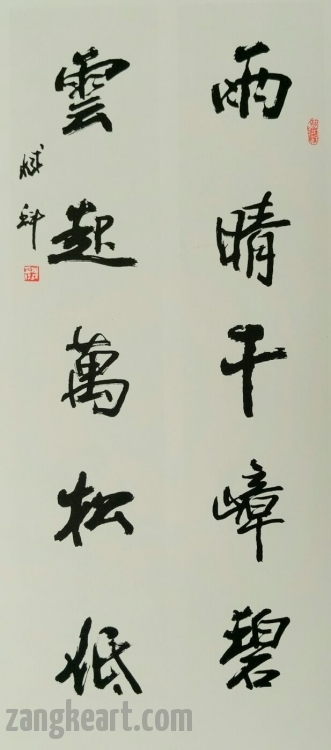 雨晴千嶂碧
雲起萬松低
zangkeart.com